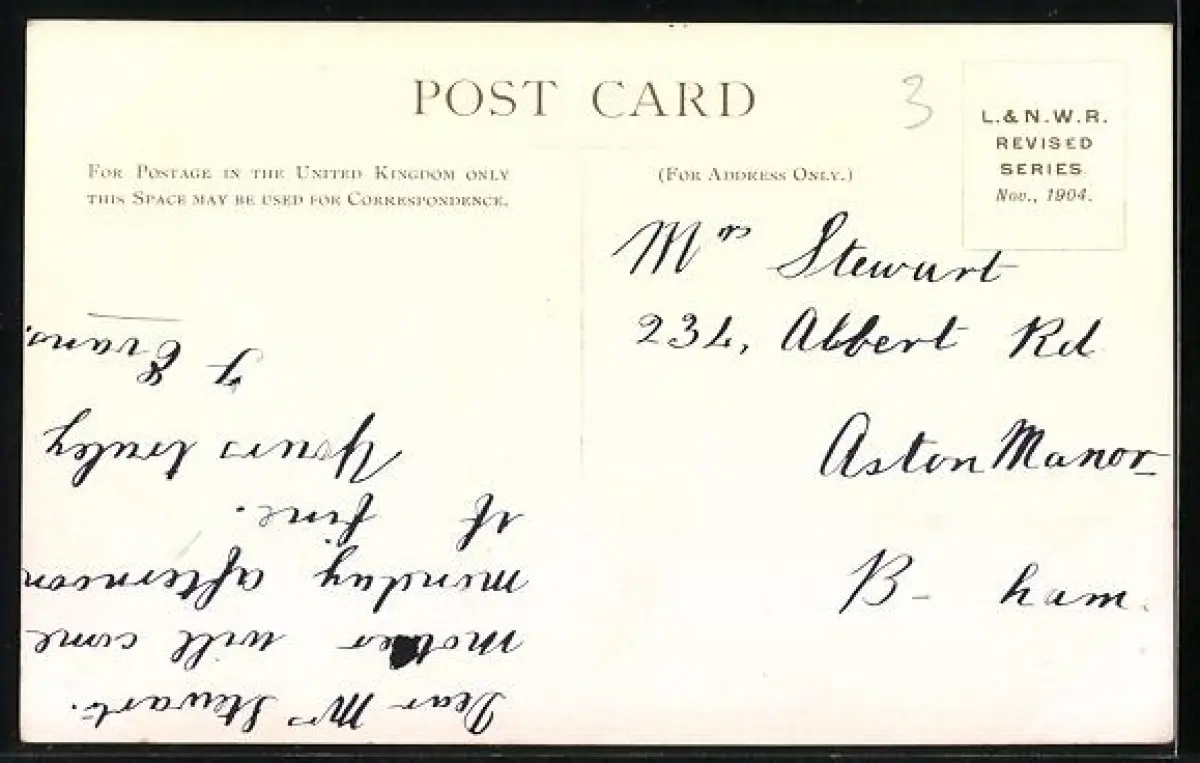 POST CARD
3
L. & N. W. R.
REVISED
SERIES
Nov., 1904.
FOR POSTAGE IN THE UNITED KINGDOM ONLY
THIS SPACE MAY BE USED FOR CORRESPONDENCE.
(FOR ADDRESS ONLY.)
Mrs Stewart
234, Albert Rd
Aston Manor
B- ham.
Dear Mrs Stewart.
Mother will come
monday afternoon
if fine.
Yours truly
F Evans.